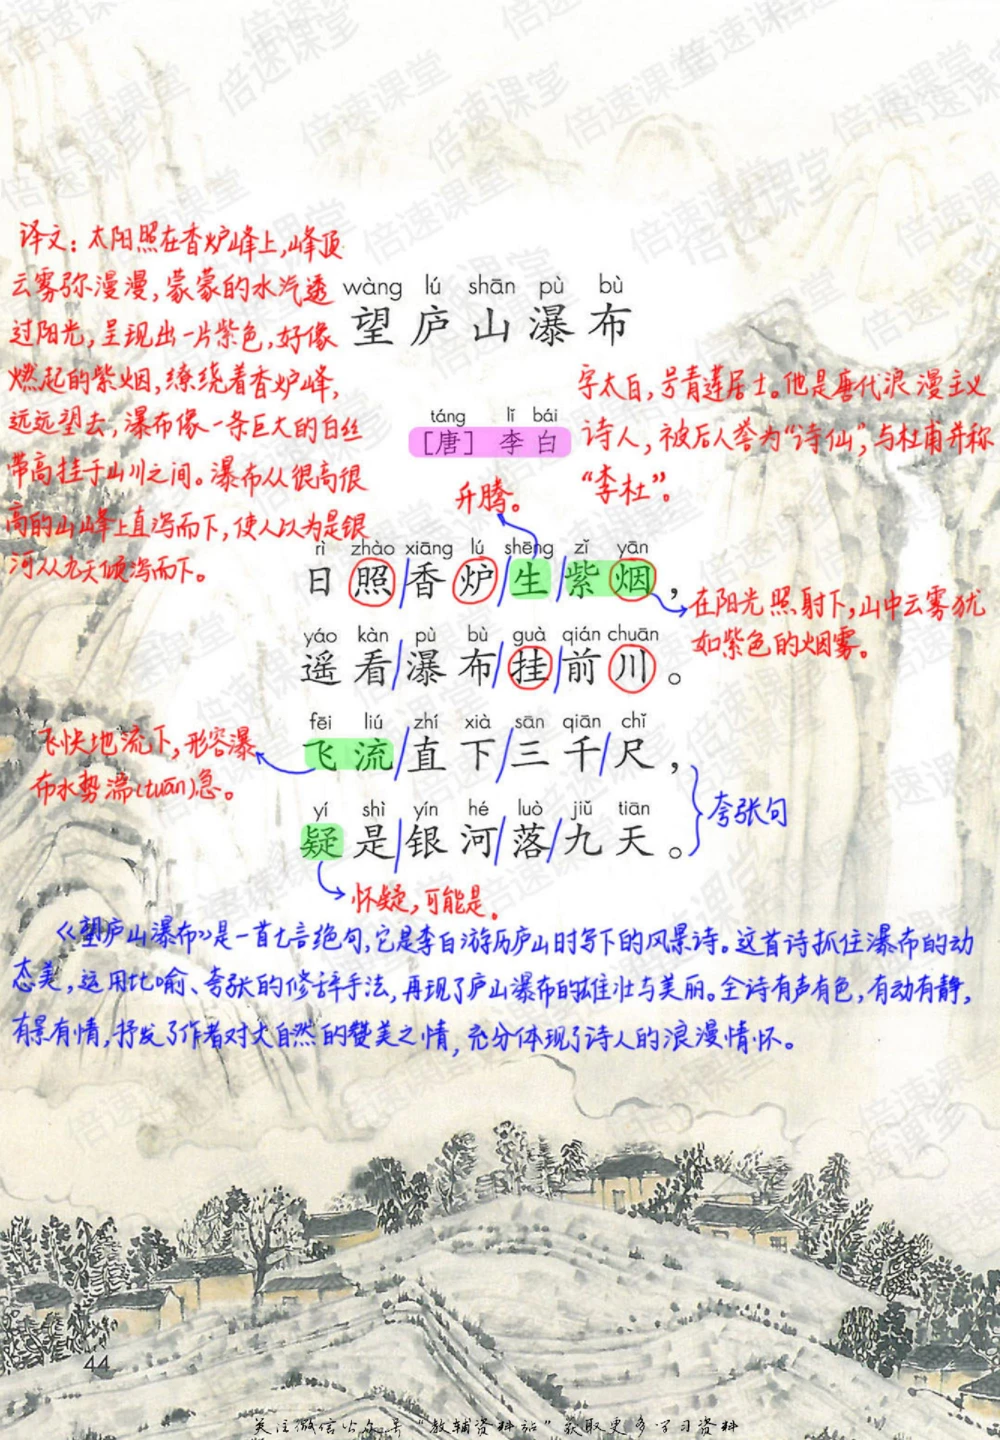 译文：太阳照在香炉峰上，峰顶
云雾弥漫漫，蒙蒙的水汽透
过阳光，呈现出一片紫色，好像
燃起的紫烟，缭绕着香炉峰，
远远望去，瀑布像一条巨大的白丝
带高挂于山川之间。瀑布从很高很
高的山峰上直泻而下，使人以为是银
河从九天倾泻而下。
wàng lú shān pù bù
望庐山瀑布
táng lǐ bái
［唐］李白
字太白，号青莲居士。他是唐代浪漫主义
诗人，被后人誉为“诗仙”，与杜甫并称
“李杜”。
升腾。
rì zhào xiāng lú shēng zǐ yān
日照/香炉/生/紫烟，
在阳光照射下，山中云雾犹
如紫色的烟雾。
yáo kàn pù bù guà qián chuān
遥看/瀑布/挂/前川。
fēi liú zhí xià sān qiān chǐ
飞流/直下/三千/尺，
飞快地流下，形容瀑
布水势湍(tuān)急。
yí shì yín hé luò jiǔ tiān
疑是/银河/落/九天。
夸张句
怀疑，可能是。
《望庐山瀑布》是一首七言绝句，它是李白游历庐山时写下的风景诗。这首诗抓住瀑布的动
态美，运用比喻、夸张的修辞手法，再现了庐山瀑布的雄壮与美丽。全诗有声有色，有动有静，
有景有情，抒发了作者对大自然的赞美之情，充分体现了诗人的浪漫情怀。
44
关注微信公众号“教辅资料站”获取更多学习资料
倍速课堂